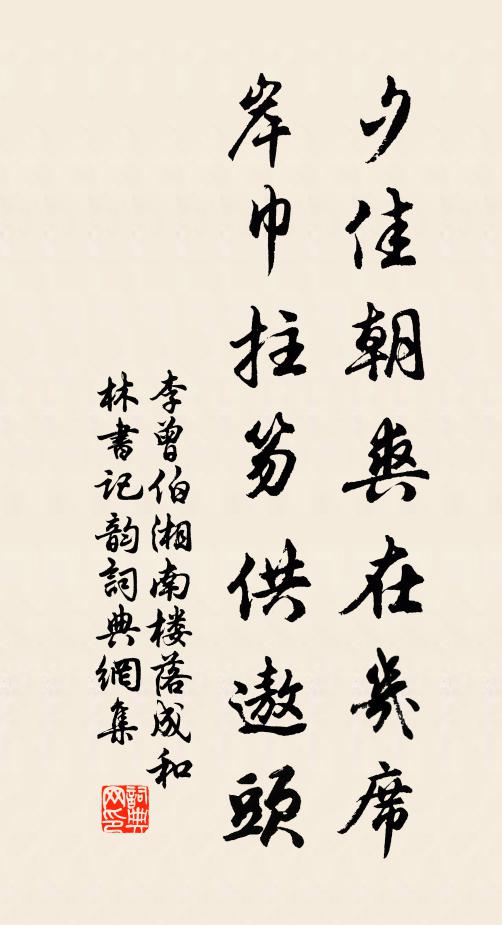 夕佳朝爽在几席
岸巾拄笏供遨頭
李曾伯湘南楼落成和
林書记韵詞典網集
詞典
网印